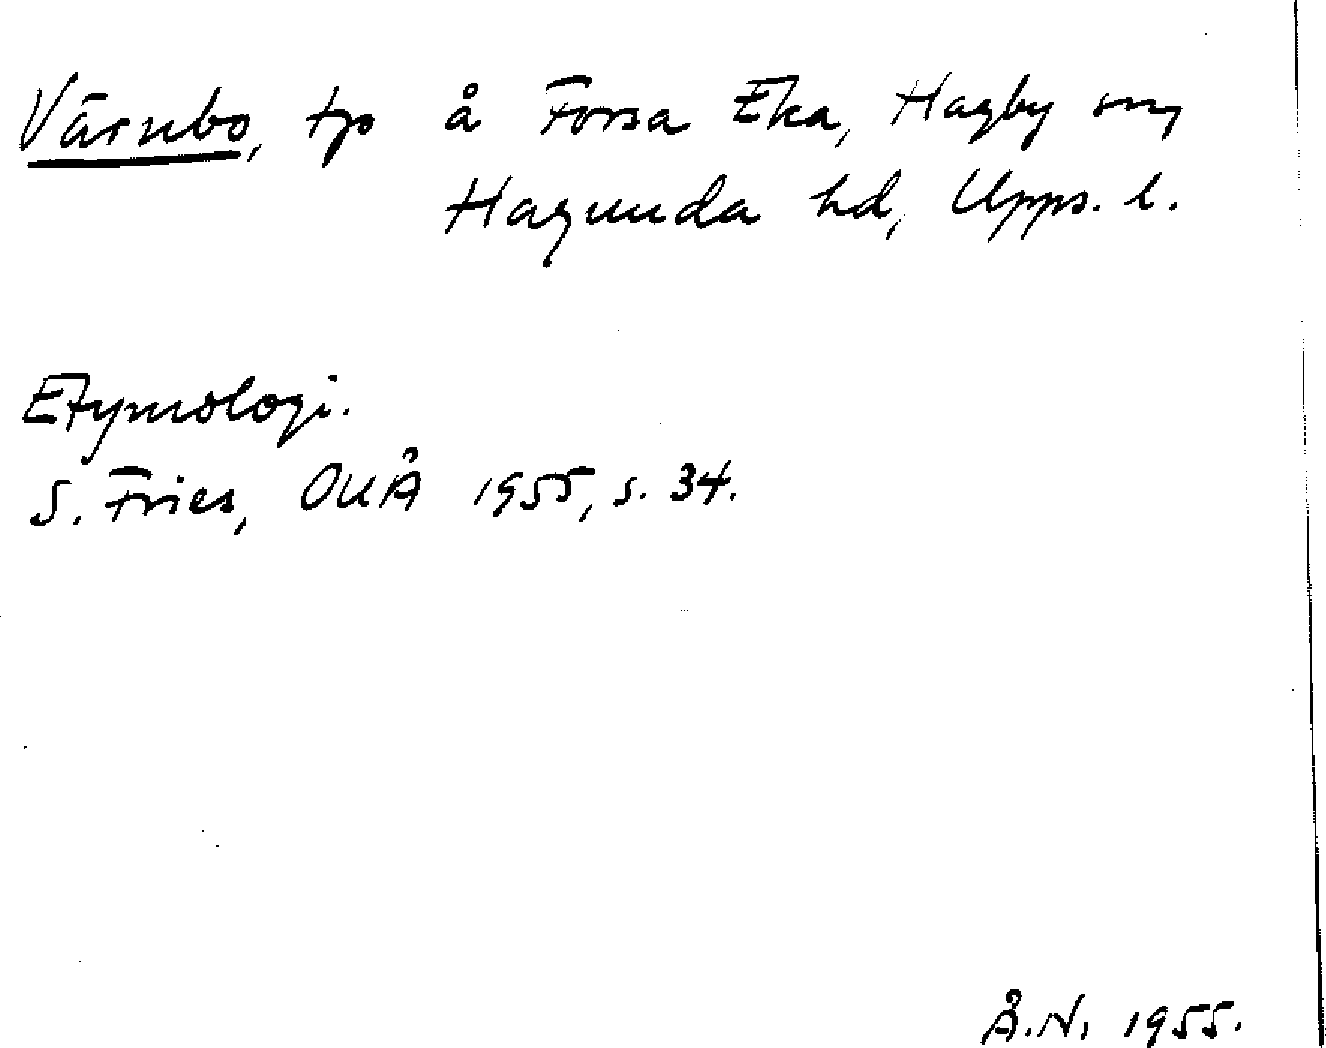 Värnbo, tp å Forsa Eka, Hagby sn,
Hagunda hd, Upps. l.
Etymologi.
S. Fries, OUÅ 1955, s. 34.
Å.N. 1955.